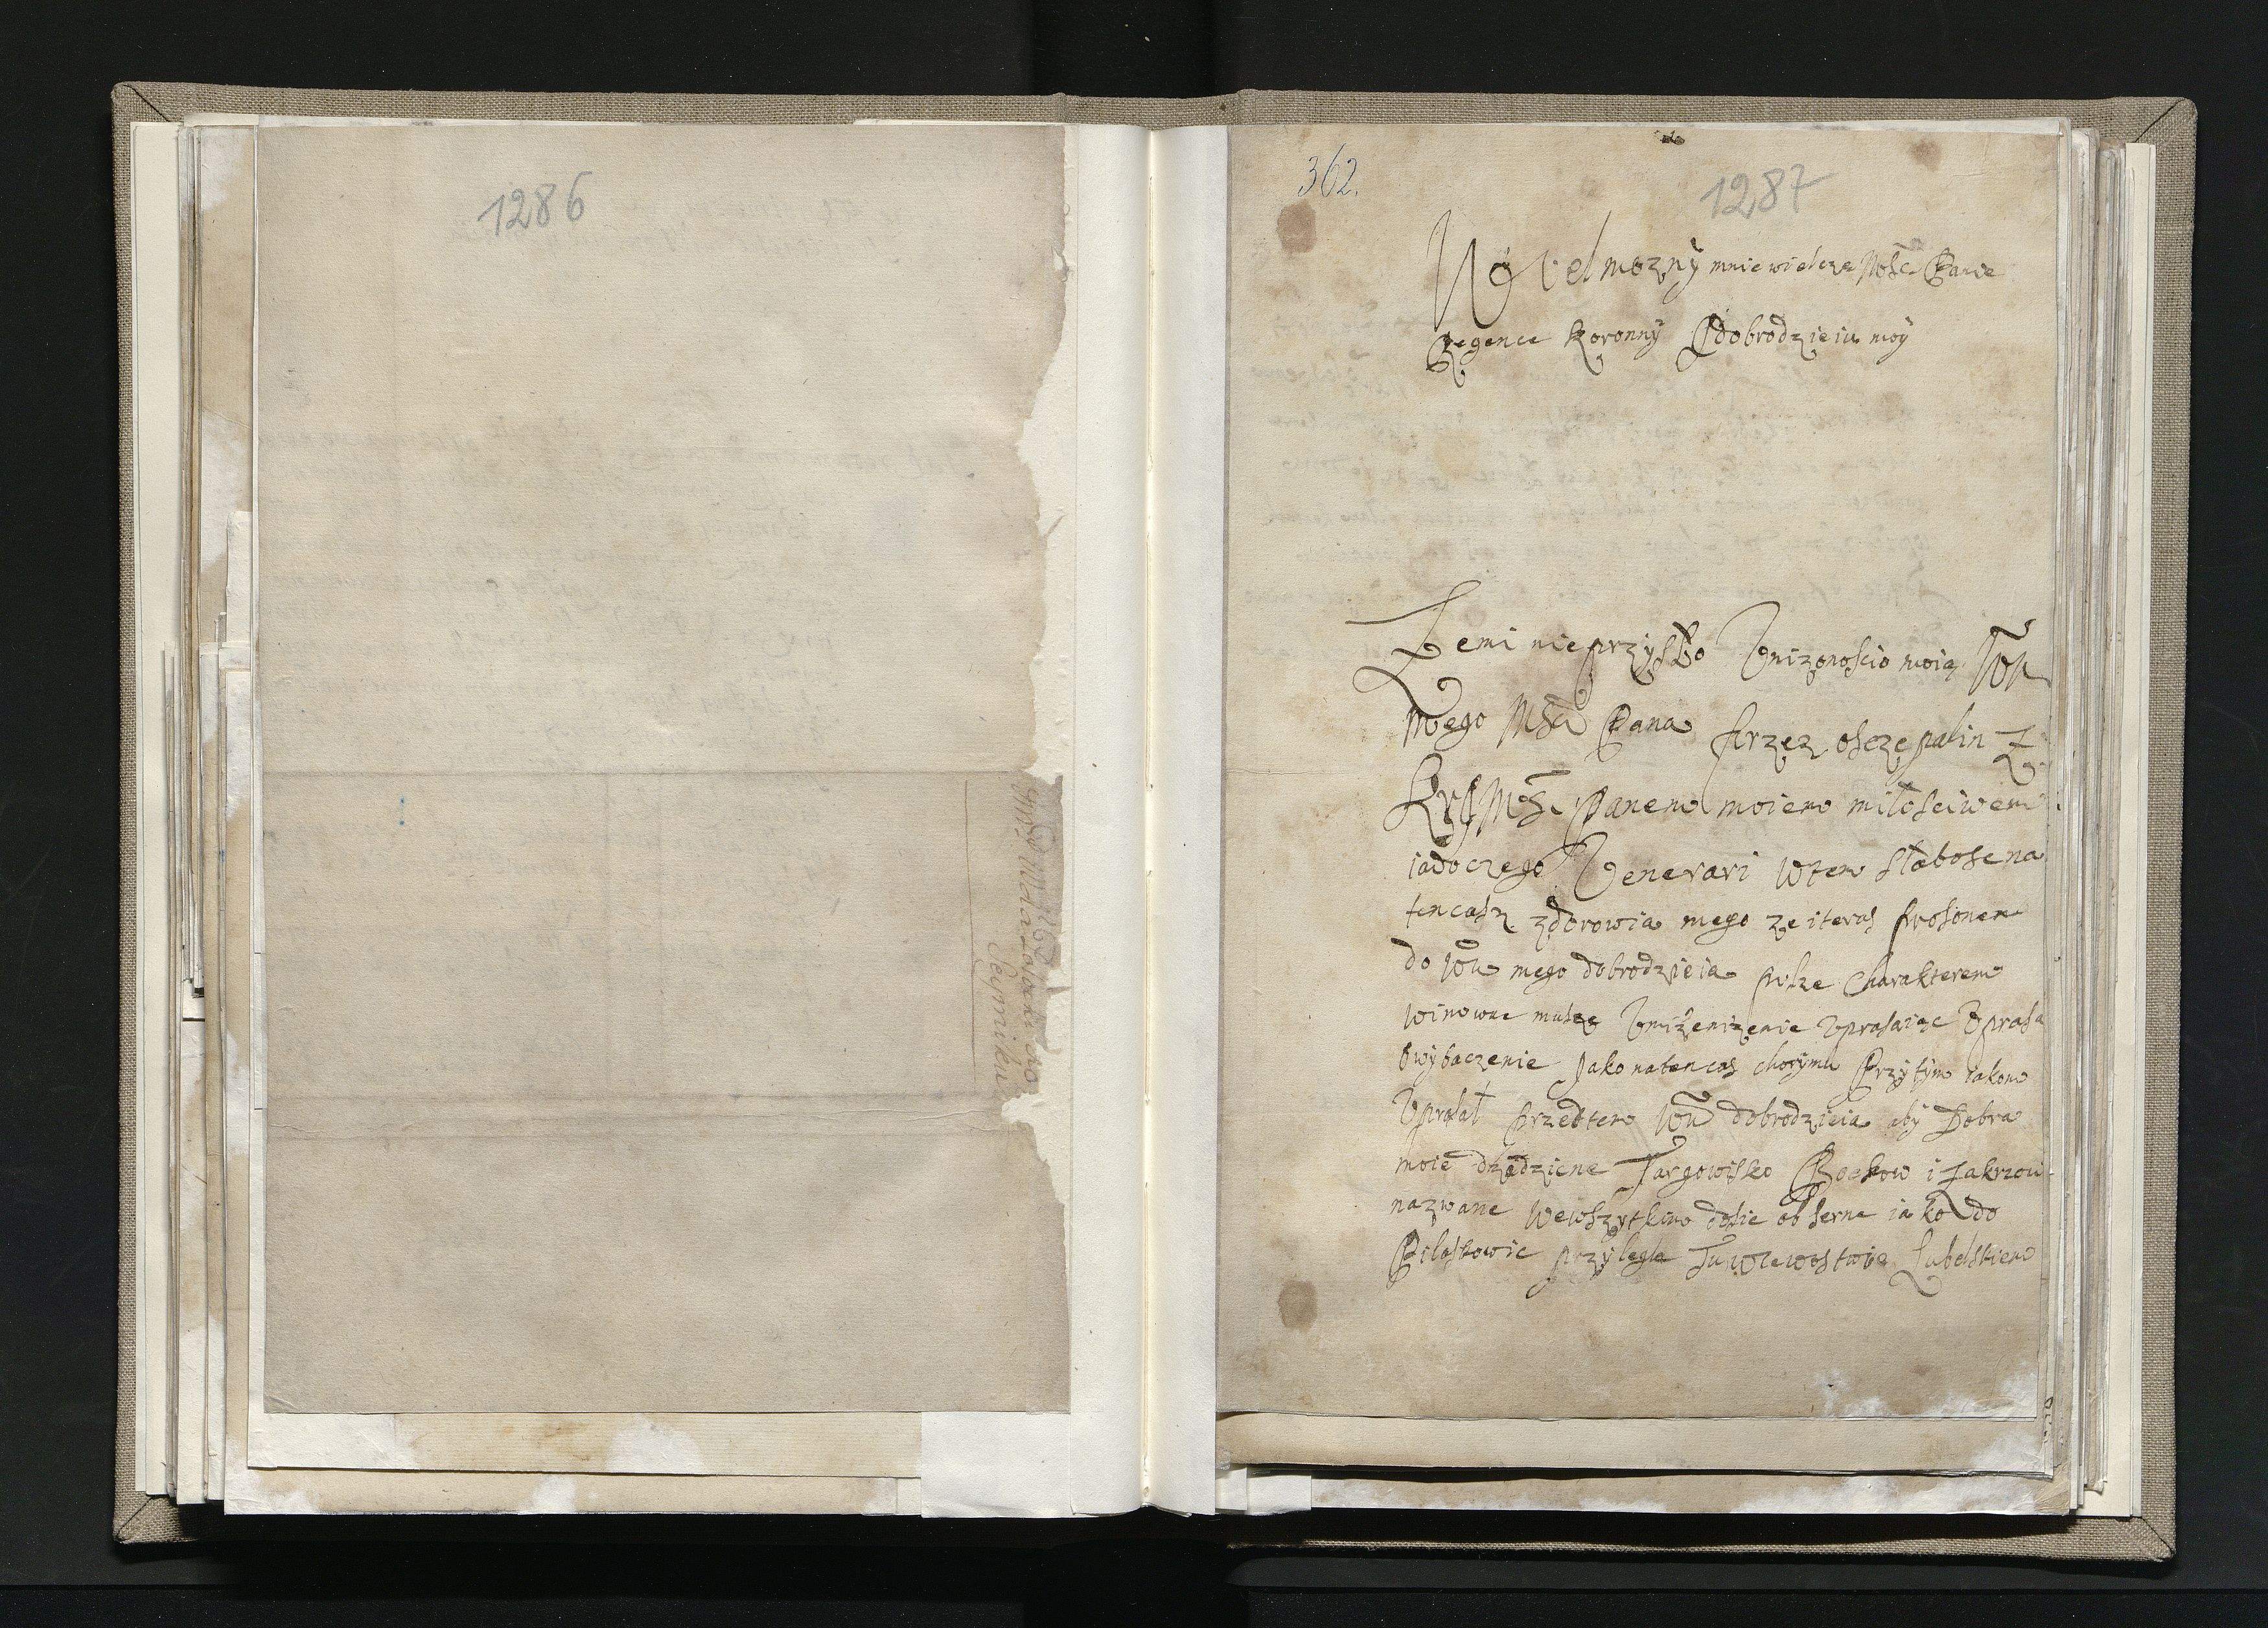 1286
Sejmików
362.
1287
Wielmozny mnie wielce Mosc Panie
Regence Koronny Dobrodzieiu moy
Zemi nie przyszło Vnizonoscio moią
Mego Pana przez Oszczepalin Z
KrJMSc Panem moiem miłosciwem
iadoczego Venerari wtem słabosc na
tencasz zdorowia mego ze iteras prosonem
do mego dobrodzieia pisze Charakterem
winowac muszę Vnizenizenie Vpraszaiąc
Owybaczenie Jako natencas chorymu Przytym iakom
Vprasał przedtem dobrodzieia aby Dobra
moie dziedzicne Targowisko Bockow i Zakrzow
nazwane wewszytkim dosic obserne iako do
Piłaskowic przyległe Tu wiewostwie Lubelskiem